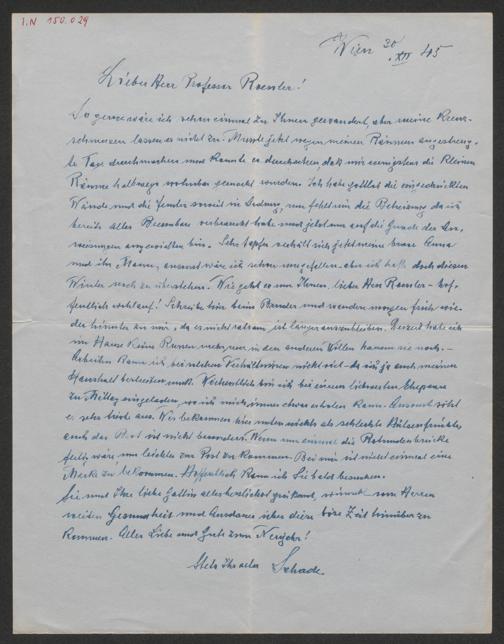 I.N 150.029
Wien 30. XII 45
Lieber Herr Professor Roessler!
So gerne wäre ich schon einmal zu Ihnen gewandert, aber meine
schmerzen lassen es nicht zu. Musste jetzt wegen meinen Räumen
Tage durchmachen und konnte es durchsetzen, daß mir wenigstens die kleinen
Räume halbwegs wohnbar gemacht wurden. Ich habe gottlob die eingedrückten
Wände und die Fenster soweit in Ordnung, nun fehlt die Beheizung da ich
bereits alles Brennbare verbraucht habe und jetzt nun auf die Gnade der
angewiesen bin. Sehr tapfer verhält sich jetzt meine brave Anna
und ihr Mann, ansonst wäre ich schon aber ich hoffe doch diesen
Winter noch zu überstehen. Wie geht es nun Ihnen, lieber Herr Roessler - hof-
fentlich wohlauf! Schreibe hier beim Bruder und wandern morgen früh wie-
der hinunter zu mir, da es nicht ratsam ist länger auszubleiben. Derzeit habe ich
im Hause keine Russen mehr, nur in den anderen Villen hausen sie noch. -
Arbeiten kann ich bei solchen Verhältnissen nicht viel - da ich ja auch meinen
Haushalt betreuen muß. Wöchentlich bin ich bei einem Ehepaare
zu Mittag eingeladen, wo ich mich immer etwas erholen kann. Ansonst sieht
es sehr trübe aus. Wir bekommen hier unten nichts als schlechte Hülsenfrüchte
auch das Brot ist nicht besonders. Wenn nur einmal die Rotundenbrücke
fertig wäre um leichter zur Post zu kommen. Bei mir ist nicht einmal eine
Marke zu bekommen. Hoffentlich kann ich Sie bald besuchen.
Sie und Ihre liebe Gattin allerherzlichst grüßend, wünscht von Herzen
Gesundheit und Ausdauer über diese böse Zeit hinüber zu
kommen. Alles Liebe und Gute zum Neujahr!
Stets Ihr alter Schade.